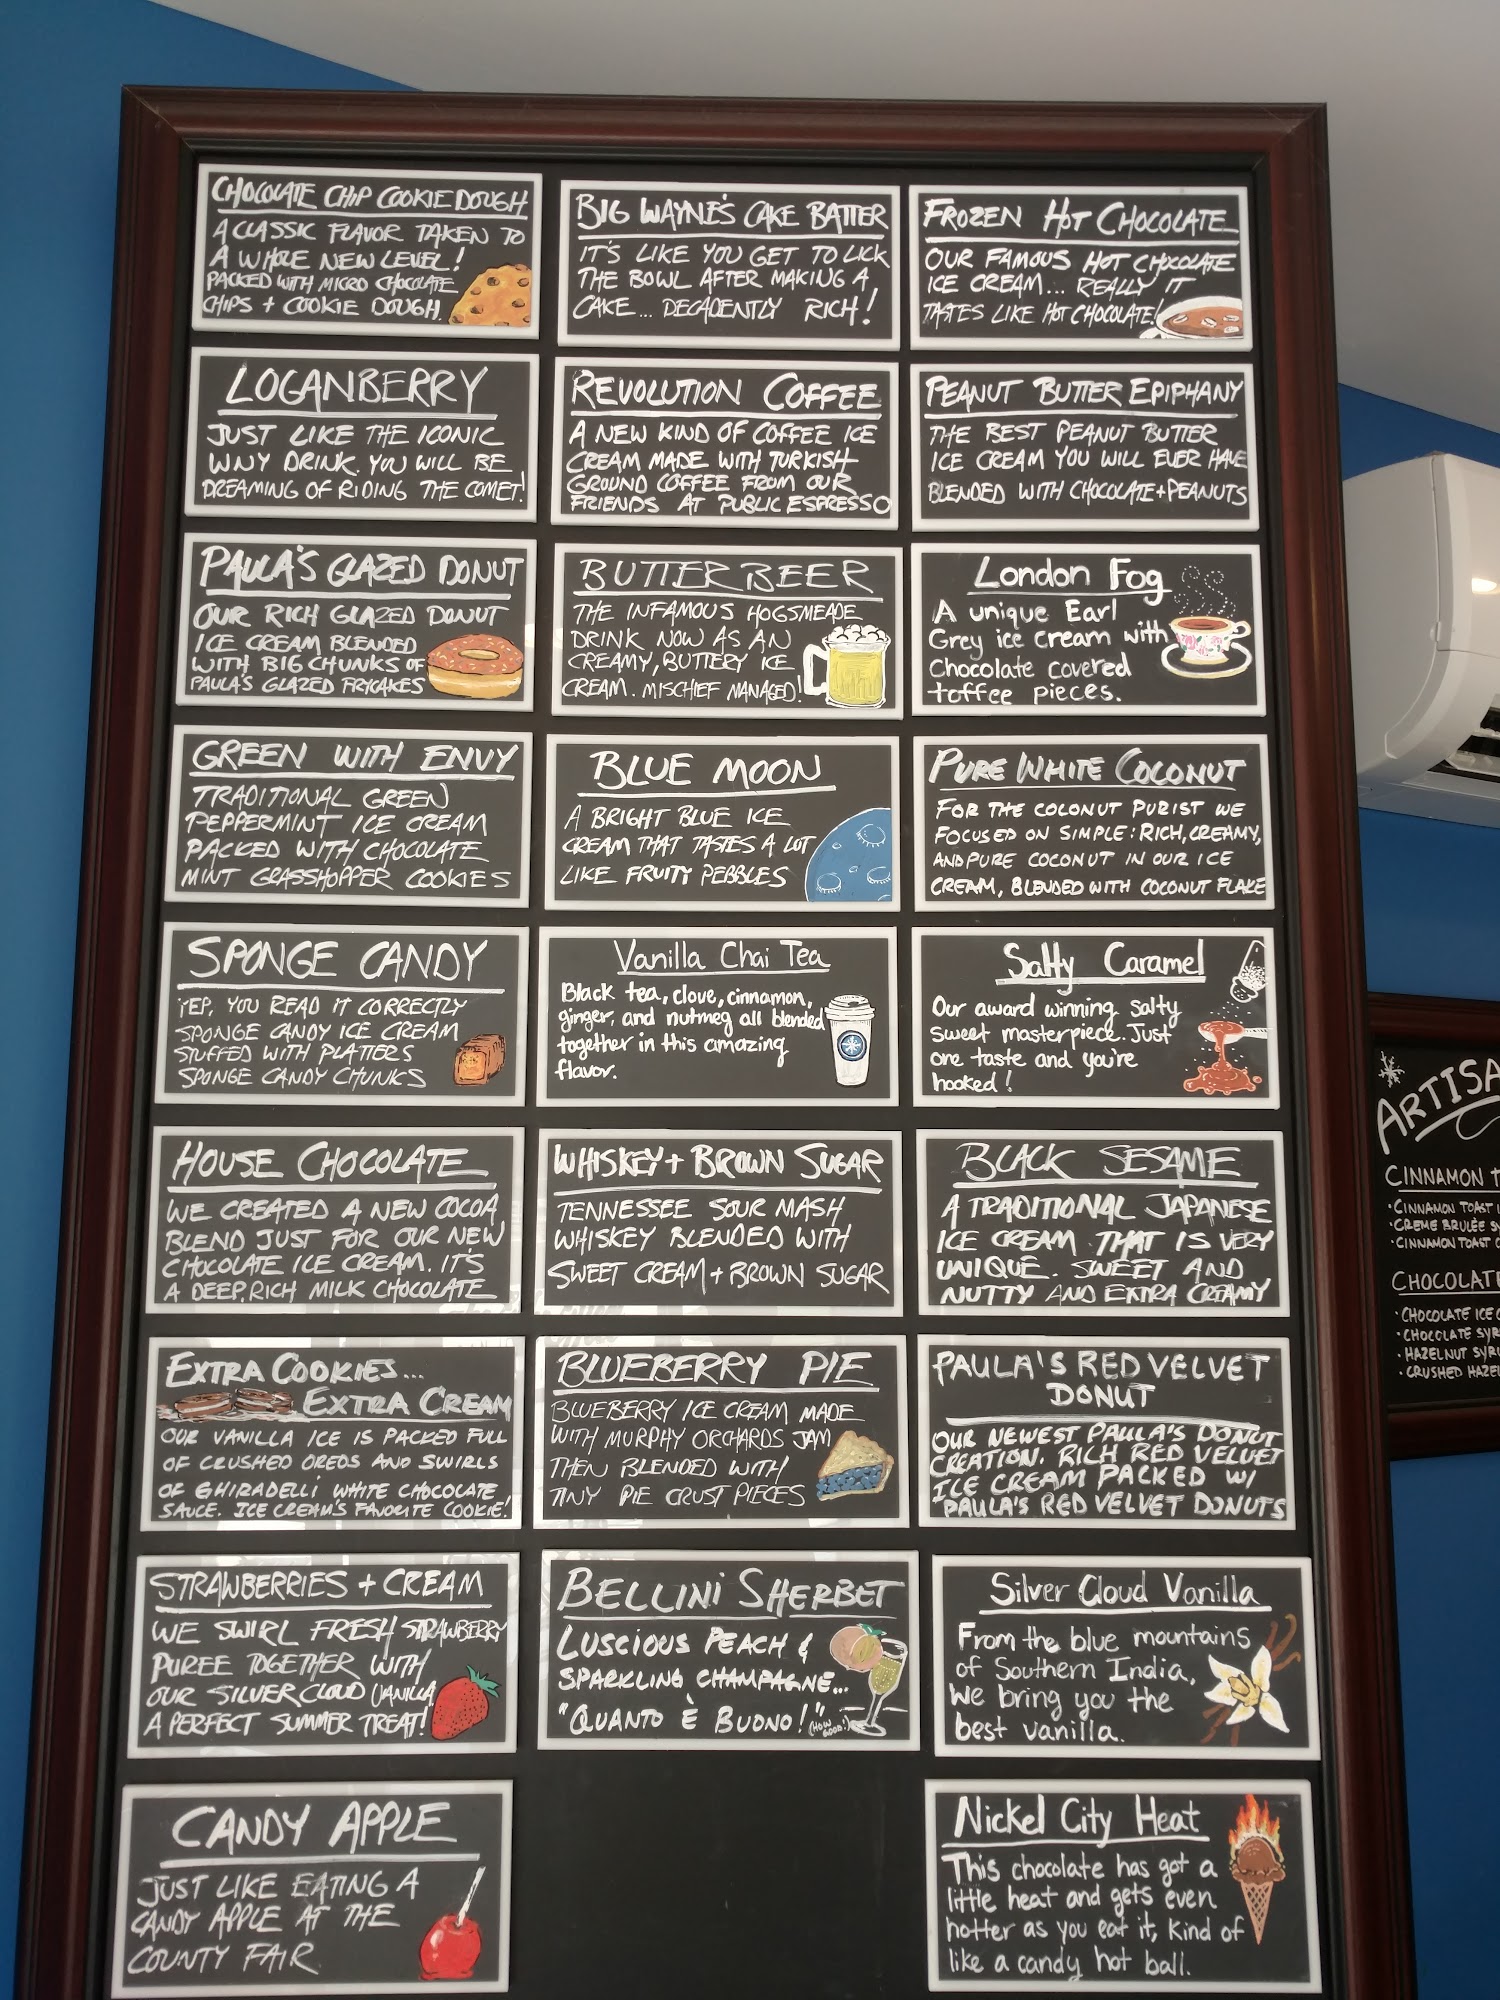 CHOCOLATE CHIP COOKIE DOUGH
A CLASSIC FLAVOR TAKEN TO
A WHOLE NEW LEVEL!
PACKED WITH MICRO CHOCOLATE
CHIPS + COOKIE DOUGH.
BIG WAYNE'S CAKE BATTER
IT'S LIKE YOU GET TO LICK
THE BOWL AFTER MAKING A
CAKE... DECADENTLY RICH!
FROZEN HOT CHOCOLATE
OUR FAMOUS HOT CHOCOLATE
ICE CREAM... REALLY IT
TASTES LIKE HOT CHOCOLATE!
LOGANBERRY
JUST LIKE THE ICONIC
WNY DRINK. YOU WILL BE
DREAMING OF RIDING THE COMET!
REVOLUTION COFFEE
A NEW KIND OF COFFEE ICE
CREAM MADE WITH TURKISH
GROUND COFFEE FROM OUR
FRIENDS AT PUBLIC ESPRESSO
PEANUT BUTTER EPIPHANY
THE BEST PEANUT BUTTER
ICE CREAM YOU WILL EVER HAVE
BLENDED WITH CHOCOLATE+PEANUTS
PAULA'S GLAZED DONUT
OUR RICH GLAZED DONUT
ICE CREAM BLENDED
WITH BIG CHUNKS OF
PAULA'S GLAZED FRYCAKES
BUTTERBEER
THE INFAMOUS HOGSMEADE
DRINK NOW AS AN
CREAMY, BUTTERY ICE
CREAM. MISCHIEF MANAGED!
London Fog
A unique Earl
Grey ice cream with
Chocolate covered
toffee pieces.
GREEN WITH ENVY
TRADITIONAL GREEN
PEPPERMINT ICE CREAM
PACKED WITH CHOCOLATE
MINT GRASSHOPPER COOKIES
BLUE MOON
A BRIGHT BLUE ICE
CREAM THAT TASTES A LOT
LIKE FRUITY PEBBLES
PURE WHITE COCONUT
FOR THE COCONUT PURIST WE
FOCUSED ON SIMPLE: RICH, CREAMY,
AND PURE COCONUT IN OUR ICE
CREAM, BLENDED WITH COCONUT FLAKE
SPONGE CANDY
YEP, YOU READ IT CORRECTLY
SPONGE CANDY ICE CREAM
STUFFED WITH PLATTERS
SPONGE CANDY CHUNKS
Vanilla Chai Tea
Black tea, clove, cinnamon,
ginger, and nutmeg all blended
together in this amazing
flavor.
Salty Caramel
Our award winning salty
sweet masterpiece. Just
one taste and you're
hooked!
HOUSE CHOCOLATE
WE CREATED A NEW COCOA
BLEND JUST FOR OUR NEW
CHOCOLATE ICE CREAM. IT'S
A DEEP, RICH MILK CHOCOLATE
WHISKEY + BROWN SUGAR
TENNESSEE SOUR MASH
WHISKEY BLENDED WITH
SWEET CREAM + BROWN SUGAR
BLACK SESAME
A TRADITIONAL JAPANESE
ICE CREAM THAT IS VERY
UNIQUE. SWEET AND
NUTTY AND EXTRA CREAMY
EXTRA COOKIES...
EXTRA CREAM
OUR VANILLA ICE IS PACKED FULL
OF CRUSHED OREOS AND SWIRLS
OF GHIRADELLI WHITE CHOCOLATE
SAUCE. ICE CREAM'S FAVORITE COOKIE!
BLUEBERRY PIE
BLUEBERRY ICE CREAM MADE
WITH MURPHY ORCHARDS JAM
THEN BLENDED WITH
TINY PIE CRUST PIECES
PAULA'S RED VELVET
DONUT
OUR NEWEST PAULA'S DONUT
CREATION. RICH RED VELVET
ICE CREAM PACKED W/
PAULA'S RED VELVET DONUTS
STRAWBERRIES + CREAM
WE SWIRL FRESH STRAWBERRY
PUREE TOGETHER WITH
OUR SILVER CLOUD VANILLA
A PERFECT SUMMER TREAT!
BELLINI SHERBET
LUSCIOUS PEACH &
SPARKLING CHAMPAGNE...
"QUANTO È BUONO!" (HOW GOOD!)
Silver Cloud Vanilla
From the blue mountains
of Southern India,
We bring you the
best vanilla.
CANDY APPLE
JUST LIKE EATING A
CANDY APPLE AT THE
COUNTY FAIR.
Nickel City Heat
This chocolate has got a
little heat and gets even
hotter as you eat it, kind of
like a candy hot ball.
ARTISA
CINNAMON T
•CINNAMON TOAST
•CREME BRULÉE
•CINNAMON TOAST
CHOCOLATE
•CHOCOLATE ICE
•CHOCOLATE SYR
•HAZELNUT SYR
•CRUSHED HAZEL